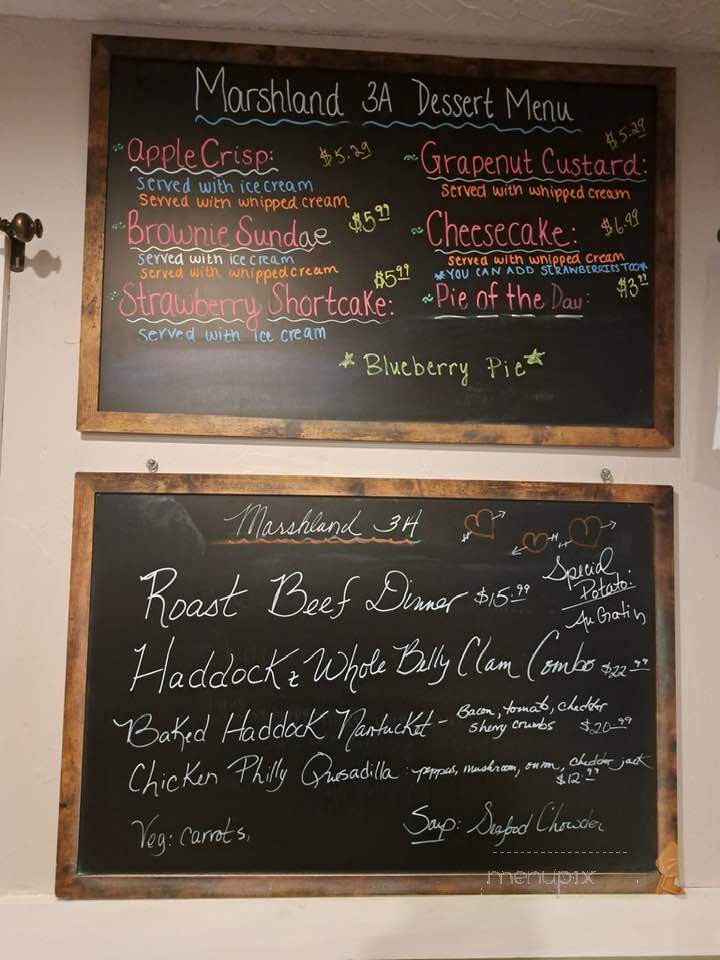 Marshland 3A Dessert Menu
Apple Crisp: $5.29
served with ice cream
served with whipped cream
Brownie Sundae $5.99
served with ice cream
served with whipped cream
Strawberry Shortcake: $5.99
served with ice cream
Grapenut Custard: $5.29
served with whipped cream
Cheesecake: $6.99
served with whipped cream
*YOU CAN ADD STRAWBERRIES TOO*
Pie of the Day:
*Blueberry Pie*
Marshland 3A
Special
Potato:
Au Gratin
Roast Beef Dinner $15.99
Haddock & Whole Belly Clam Combo $22.99
Baked Haddock Nantucket - Bacon, tomato, cheddar
sherry crumbs $20.99
Chicken Philly Quesadilla: peppers, mushroom, onion, cheddar jack
$12.99
Veg: carrots,
Soup: Seafood Chowder
menupix